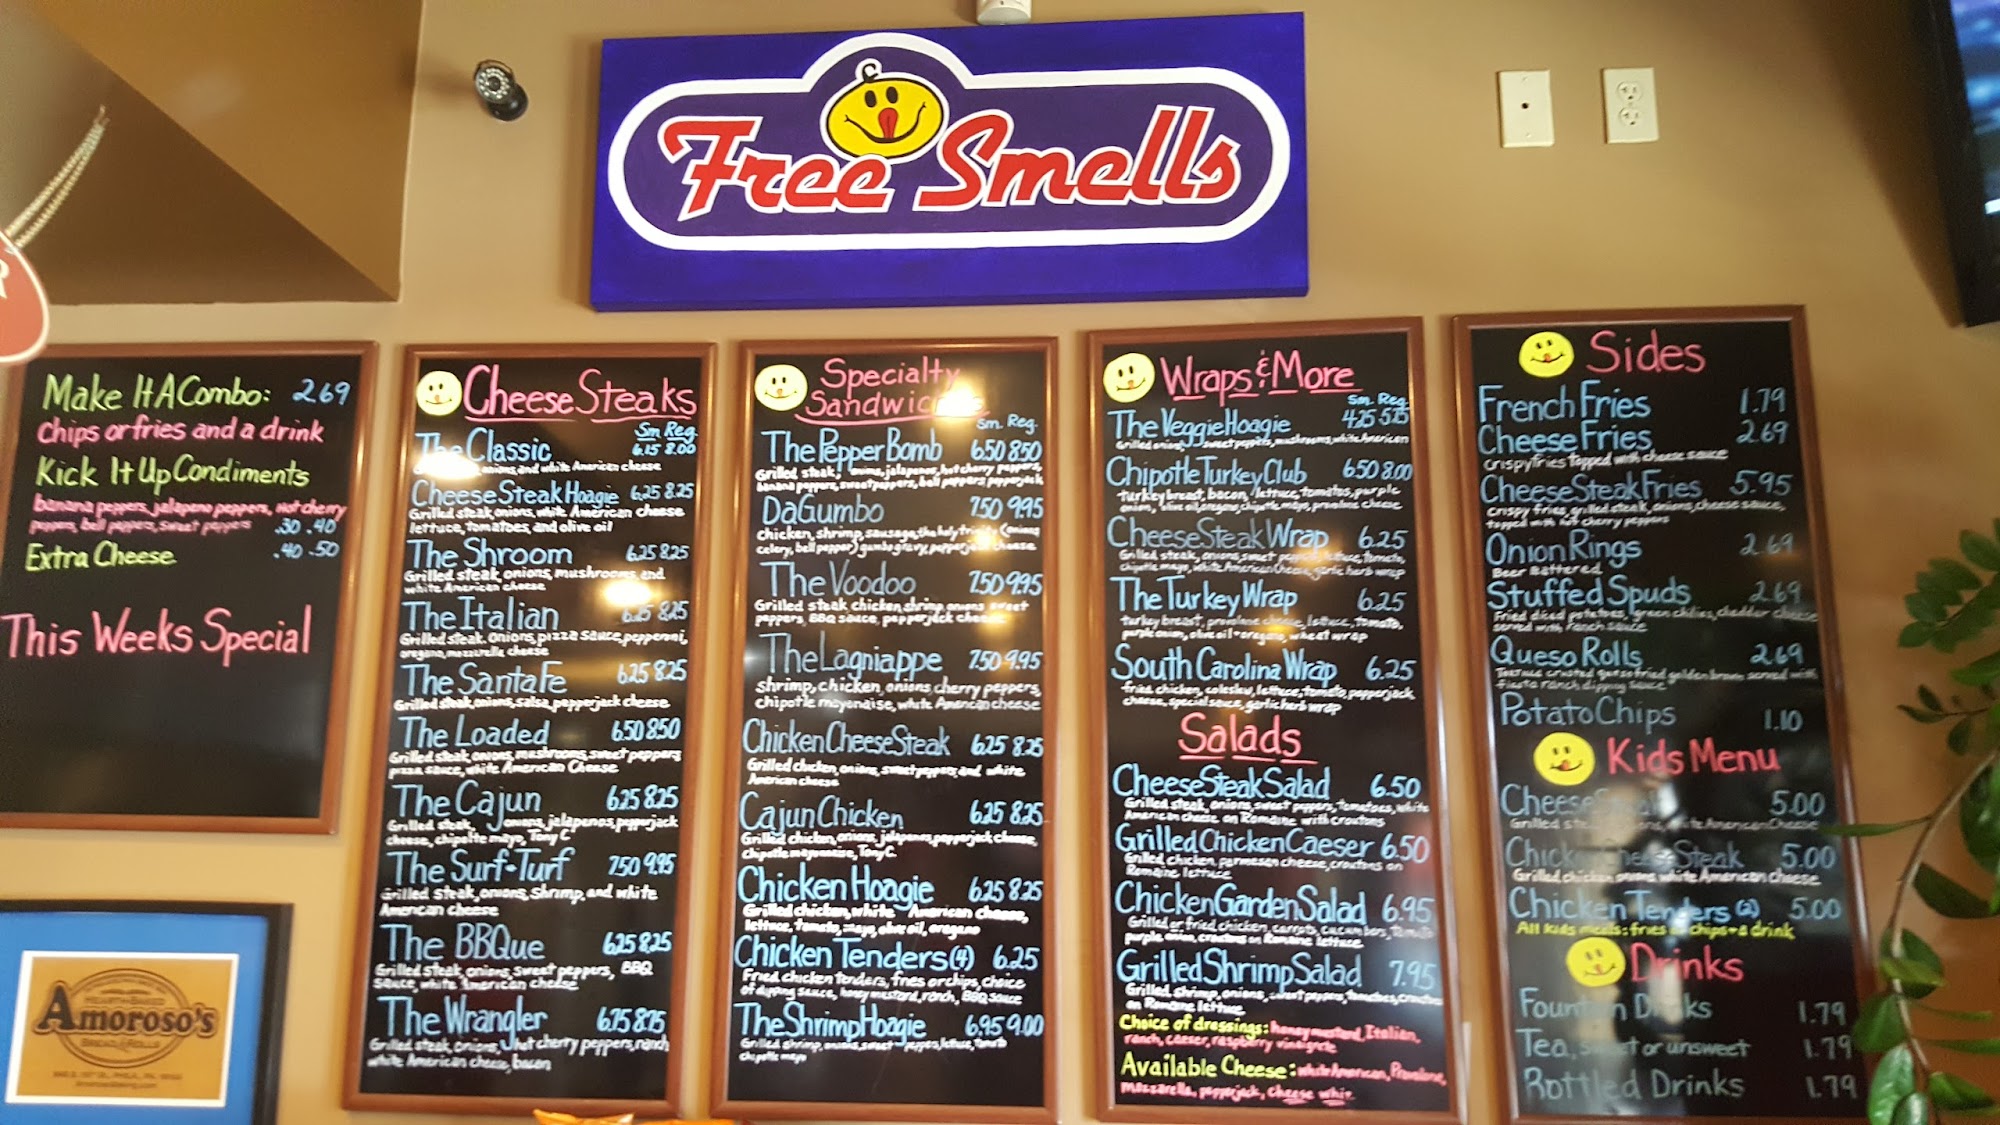 Free Smells
Make It A Combo: 2.69
Chips or fries and a drink
Kick It Up Condiments
banana peppers, jalapeno peppers, hot cherry
peppers, bell peppers, sweet peppers .30 .40
Extra Cheese .40 .50
This Weeks Special
Amoroso's
HEARTH-BAKED
BREAD & ROLLS
Cheese Steaks
Sm Reg.
The Classic 6.15 8.00
onions, and white American cheese
Cheese Steak Hoagie 6.25 8.25
Grilled steak, onions, white American cheese
lettuce, tomatoes, and olive oil
The Shroom 6.25 8.25
Grilled steak, onions, mushrooms, and
white American cheese
The Italian 6.25 8.25
Grilled steak, onions, pizza sauce, pepperoni,
oregano, mozzarella cheese
The Santa Fe 6.25 8.25
Grilled steak, onions, salsa, pepperjack cheese
The Loaded 6.50 8.50
Grilled steak, onions, mushrooms, sweet peppers
pizza sauce, white American Cheese
The Cajun 6.25 8.25
Grilled steak, onions, jalapenos, pepperjack
cheese, chipotle mayo, Tony C'
The Surf-Turf 7.50 9.95
Grilled steak, onions, shrimp, and white
American cheese
The BBQue 6.25 8.25
Grilled steak, onions, sweet peppers, BBQ
sauce, white American cheese
The Wrangler 6.75 8.75
Grilled steak, onions, hot cherry peppers, ranch
white American cheese, bacon
Specialty
Sandwiches
Sm. Reg.
The Pepper Bomb 6.50 8.50
Grilled steak, onions, jalapenos, hot cherry peppers,
banana peppers, sweet peppers, bell peppers pepperjack
Da Gumbo 7.50 9.95
chicken, shrimp, sausage, the holy trinity (onions
celery, bell pepper) gumbo gravy, pepperjack cheese
The Voodoo 7.50 9.95
Grilled steak chicken, shrimp, onions sweet
peppers, BBQ sauce, pepperjack cheese
The Lagniappe 7.50 9.95
shrimp, chicken, onions, cherry peppers,
chipotle mayonaise, white American cheese
Chicken Cheese Steak 6.25 8.25
Grilled chicken, onions, sweet peppers and white
American cheese
Cajun Chicken 6.25 8.25
Grilled chicken, onions, jalapenos, pepperjack cheese,
chipotle mayonnaise, Tony C.
Chicken Hoagie 6.25 8.25
Grilled chicken, white American cheese,
lettuce, tomato, mayo, olive oil, oregano
Chicken Tenders (4) 6.25
Fried chicken tenders, fries or chips, choice
of dipping sauce, honey mustard, ranch, BBQ sauce
The Shrimp Hoagie 6.95 9.00
Grilled shrimp, onions, sweet peppers, lettuce, tomato
chipotle mayo
Wraps & More
Sm. Reg.
The Veggie Hoagie 4.25 5.75
Grilled onions, sweet peppers, mushrooms, white American
Chipotle Turkey Club 6.50 8.00
turkey breast, bacon, lettuce, tomatos, purple
onion, olive oil, oregano, chipotle mayo, provalone cheese
Cheese Steak Wrap 6.25
Grilled steak, onions, sweet peppers, lettuce, tomato,
chipotle mayo, white American Cheese, garlic herb wrap
The Turkey Wrap 6.25
turkey breast, provalone cheese, lettuce, tomato,
purple onion, olive oil + oregano, wheat wrap
South Carolina Wrap 6.25
fried chicken, coleslaw, lettuce, tomato, pepperjack
cheese, special sauce, garlic herb wrap
Salads
Cheese Steak Salad 6.50
Grilled steak, onions, sweet peppers, tomatoes, white
American cheese on Romaine with croutons
Grilled Chicken Caeser 6.50
Grilled chicken, permesan cheese, croutons on
Romaine lettuce
Chicken Garden Salad 6.95
Grilled or fried chicken, carrots, cucumbers, tomato
purple onion, croutons on Romaine lettuce
Grilled Shrimp Salad 7.95
Grilled shrimp, onions, sweet peppers, tomatoes, croutons
on Romaine lettuce
Choice of dressings: honey mustard, Italian,
ranch, caeser, raspberry vinaigrette
Available Cheese: white American, Provalone,
mozzarella, pepperjack, cheese whiz
Sides
French Fries 1.79
Cheese Fries 2.69
crispy fries topped with cheese sauce
Cheese Steak Fries 5.95
crispy fries, grilled steak, onions, cheese sauce,
topped with hot cherry peppers
Onion Rings 2.69
Beer Battered
Stuffed Spuds 2.69
Fried diced potatoes, green chilies, cheddar cheese
served with ranch sauce
Queso Rolls 2.69
Tortilla crusted queso fried golden brown served with
fiesta ranch dipping sauce
Potato Chips 1.10
Kids Menu
Cheese Steak 5.00
Grilled steak, onions, white American Cheese
Chicken Cheese Steak 5.00
Grilled chicken onions white American cheese
Chicken Tenders (2) 5.00
All kids meals: fries or chips + a drink
Drinks
Fountain Drinks 1.79
Tea, sweet or unsweet 1.79
Bottled Drinks 1.79